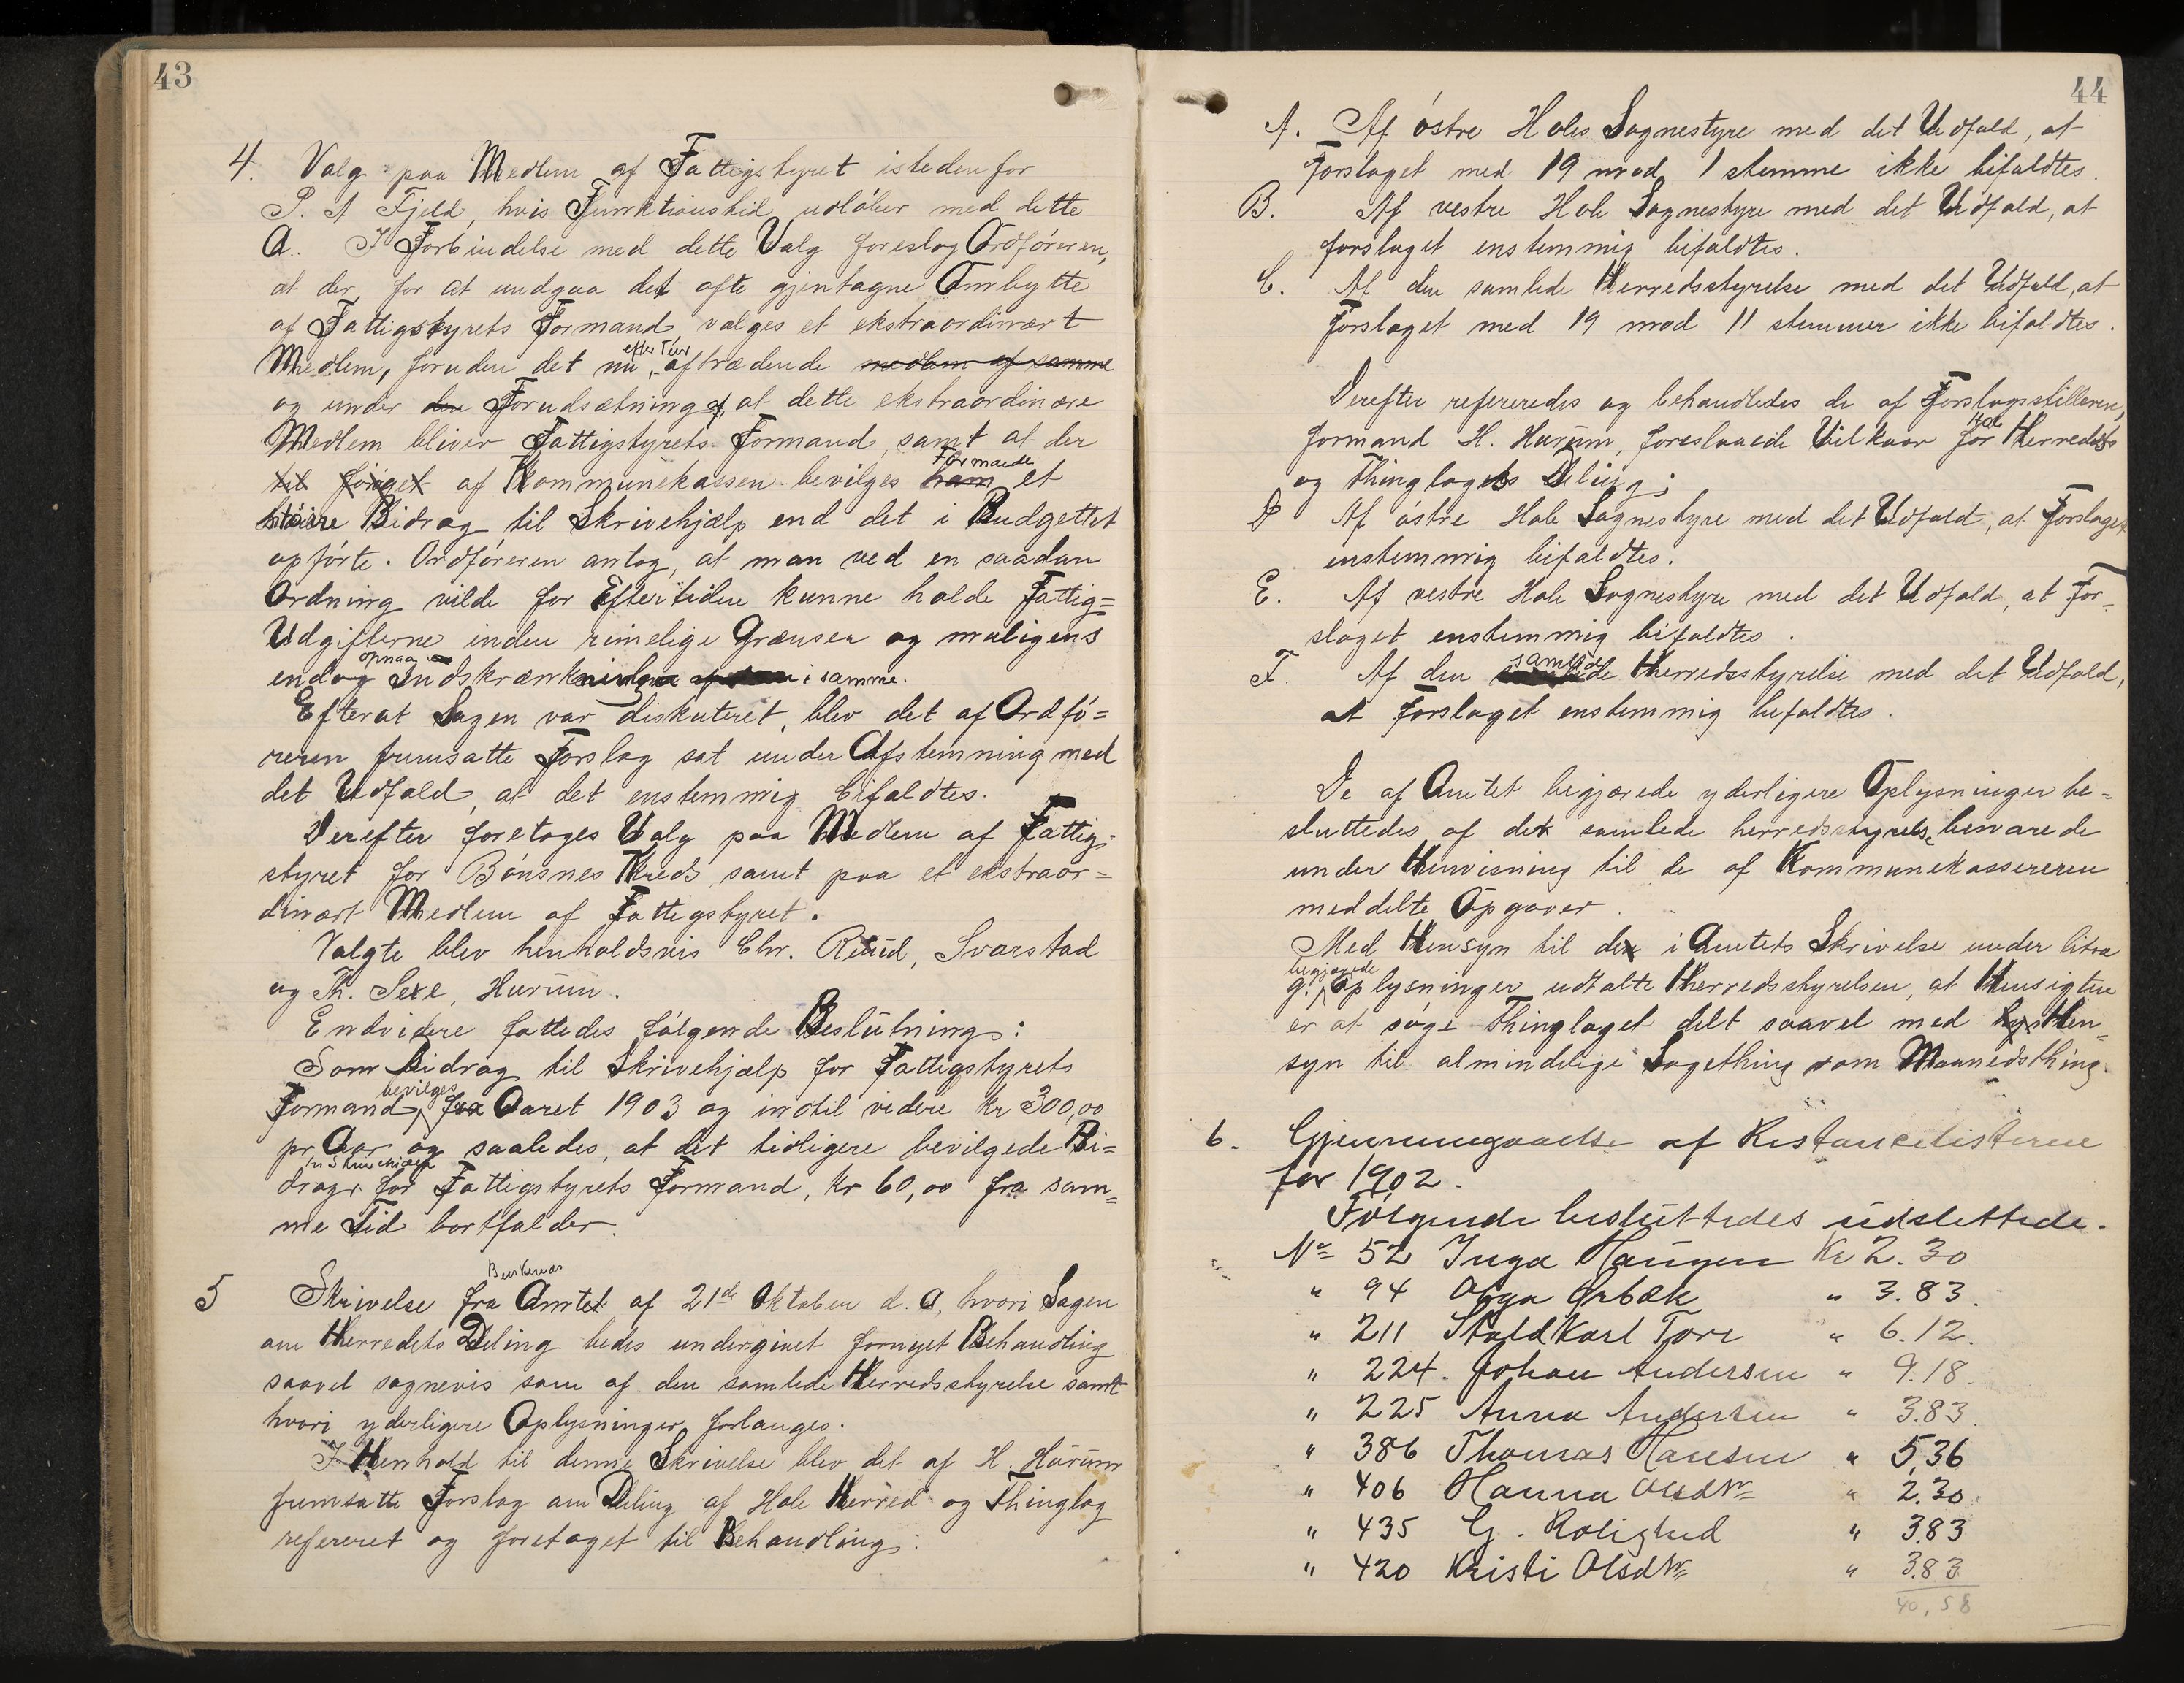 43
4. Valg paa Medlem af Fattigstyret istedenfor
P. A Fjeld, hvis Funktionstid udløber med dette
A. I Forbindelse med dette Valg foreslog Ordføreren,
at der, for at undgaa det ofte gjentagne Ombytte
af Fattigstyrets Formand, valges et ekstraordinært
efter Tur
Medlem, foruden det nu, aftrædende medlem af samme
og under den Forudsætning af at dette ekstraordinære
Medlem bliver Fattigstyrets Formand, samt at der
Formande
af Kommunekassen bevilges ham et
større Bidrag til Skrivehjælp end det i Budgettet
opførte. Ordføreren antog, at man ved en saadan
Ordning vilde for Eftertiden kunne holde Fattig=
Udgifterne inden rimelige Grænser og muligens
opnaa
endog Indskrænkninger i samme.
Efterat Sagen var diskuteret, blev det af Ordfø=
reren fremsatte Forslag sat under Afstemning med
det Udfald, at det enstemmig bifaldtes.
Derefter foretoges Valg paa Medlem af Fattig-
styret for Bønsnes Kreds, samt paa et ekstraor=
dinært Medlem af Fattigstyret.
Valgte blev henholdsvis Chr. Rudd, Svarstad
og Th. Sexe, Hurum.
Endvidere fattedes følgende Beslutning:
Som Bidrag til Skrivehjælp for Fattigstyrets
bevilges
Formand, fra Aaret 1903 og indtil videre kr 300,00
pr Aar og saaledes, at det tidligere bevilgede Bi=
til Skrivehjælp
drag, for Fattigstyrets Formand, kr 60,00 fra sam=
me Tid bortfalder.
Buskeruds
5 Skrivelse fra Amtet af 21de Oktober d. A, hvori Sagen
om Herredets Deling bedes undergivet fornyet Behandling
saavel sognevis som af den samlede Herredsstyrelse samt
hvori yderligere Oplysninger forlanges.
I Henhold til denne Skrivelse blev det af H. Hurum
fremsatte Forslag om Deling af Hole Herred og Thinglag
refereret og foretaget til Behandling:
44
A. Af østre Holes Sognestyre med det Udfald, at
Forslaget med 19 mod 1 stemme ikke bifaldtes.
B. Af vestre Hole Sognestyre med det Udfald, at
forslaget enstemmig bifaldtes.
C. Af den samlede Herredsstyrelse med det Udfald, at
Forslaget med 19 mod 11 stemmer ikke bifaldtes.
Derefter refereredes og behandledes de af Forslagsstilleren,
Hole
formand H. Hurum, foreslaaede Vilkaar for Herredets
og Thinglagets Deling;
D Af østre Hole Sognestyre med det Udfald, at Forslaget
enstemmig bifaldtes.
E. Af vestre Hole Sognestyre med det Udfald, at For-
slaget enstemmig bifaldtes.
samlede
F. Af den Herredsstyrelse med det Udfald,
at Forslaget enstemmig bifaldtes.
De af Amtet begjærede yderligere Oplysninger be=
sluttedes af det samlede herredsstyrelse besvarede
under Henvisning til de af Kommunekassereren
meddelte Opgaver.
Med Hensyn til de i Amtets Skrivelse under litra
begjærede
g. Oplysninger udtalte Herredsstyrelsen, at Hensigten
er at søge Thinglaget delt saavel med Hen-
syn til almindelige Sagething som Maanedsthing.
6. Gjennemgaaelse af Restancelisterne
for 1902.
Følgende besluttedes udslettede.
No 52 Inga Haugen Kr 2.30
" 94 Olga Orbæk " 3.83.
" 211 Stald Karl Tore " 6.12.
" 224. Johan Andersen " 9.18.
" 225 Anna Andersen " 3.83.
" 386 Thomas Hansen " 5,36
" 406 Hanna Olsdtr " 2.30.
" 435 G. Rolighed " 3.83
" 420 Kristi Olsdtr " 3.83
40,58